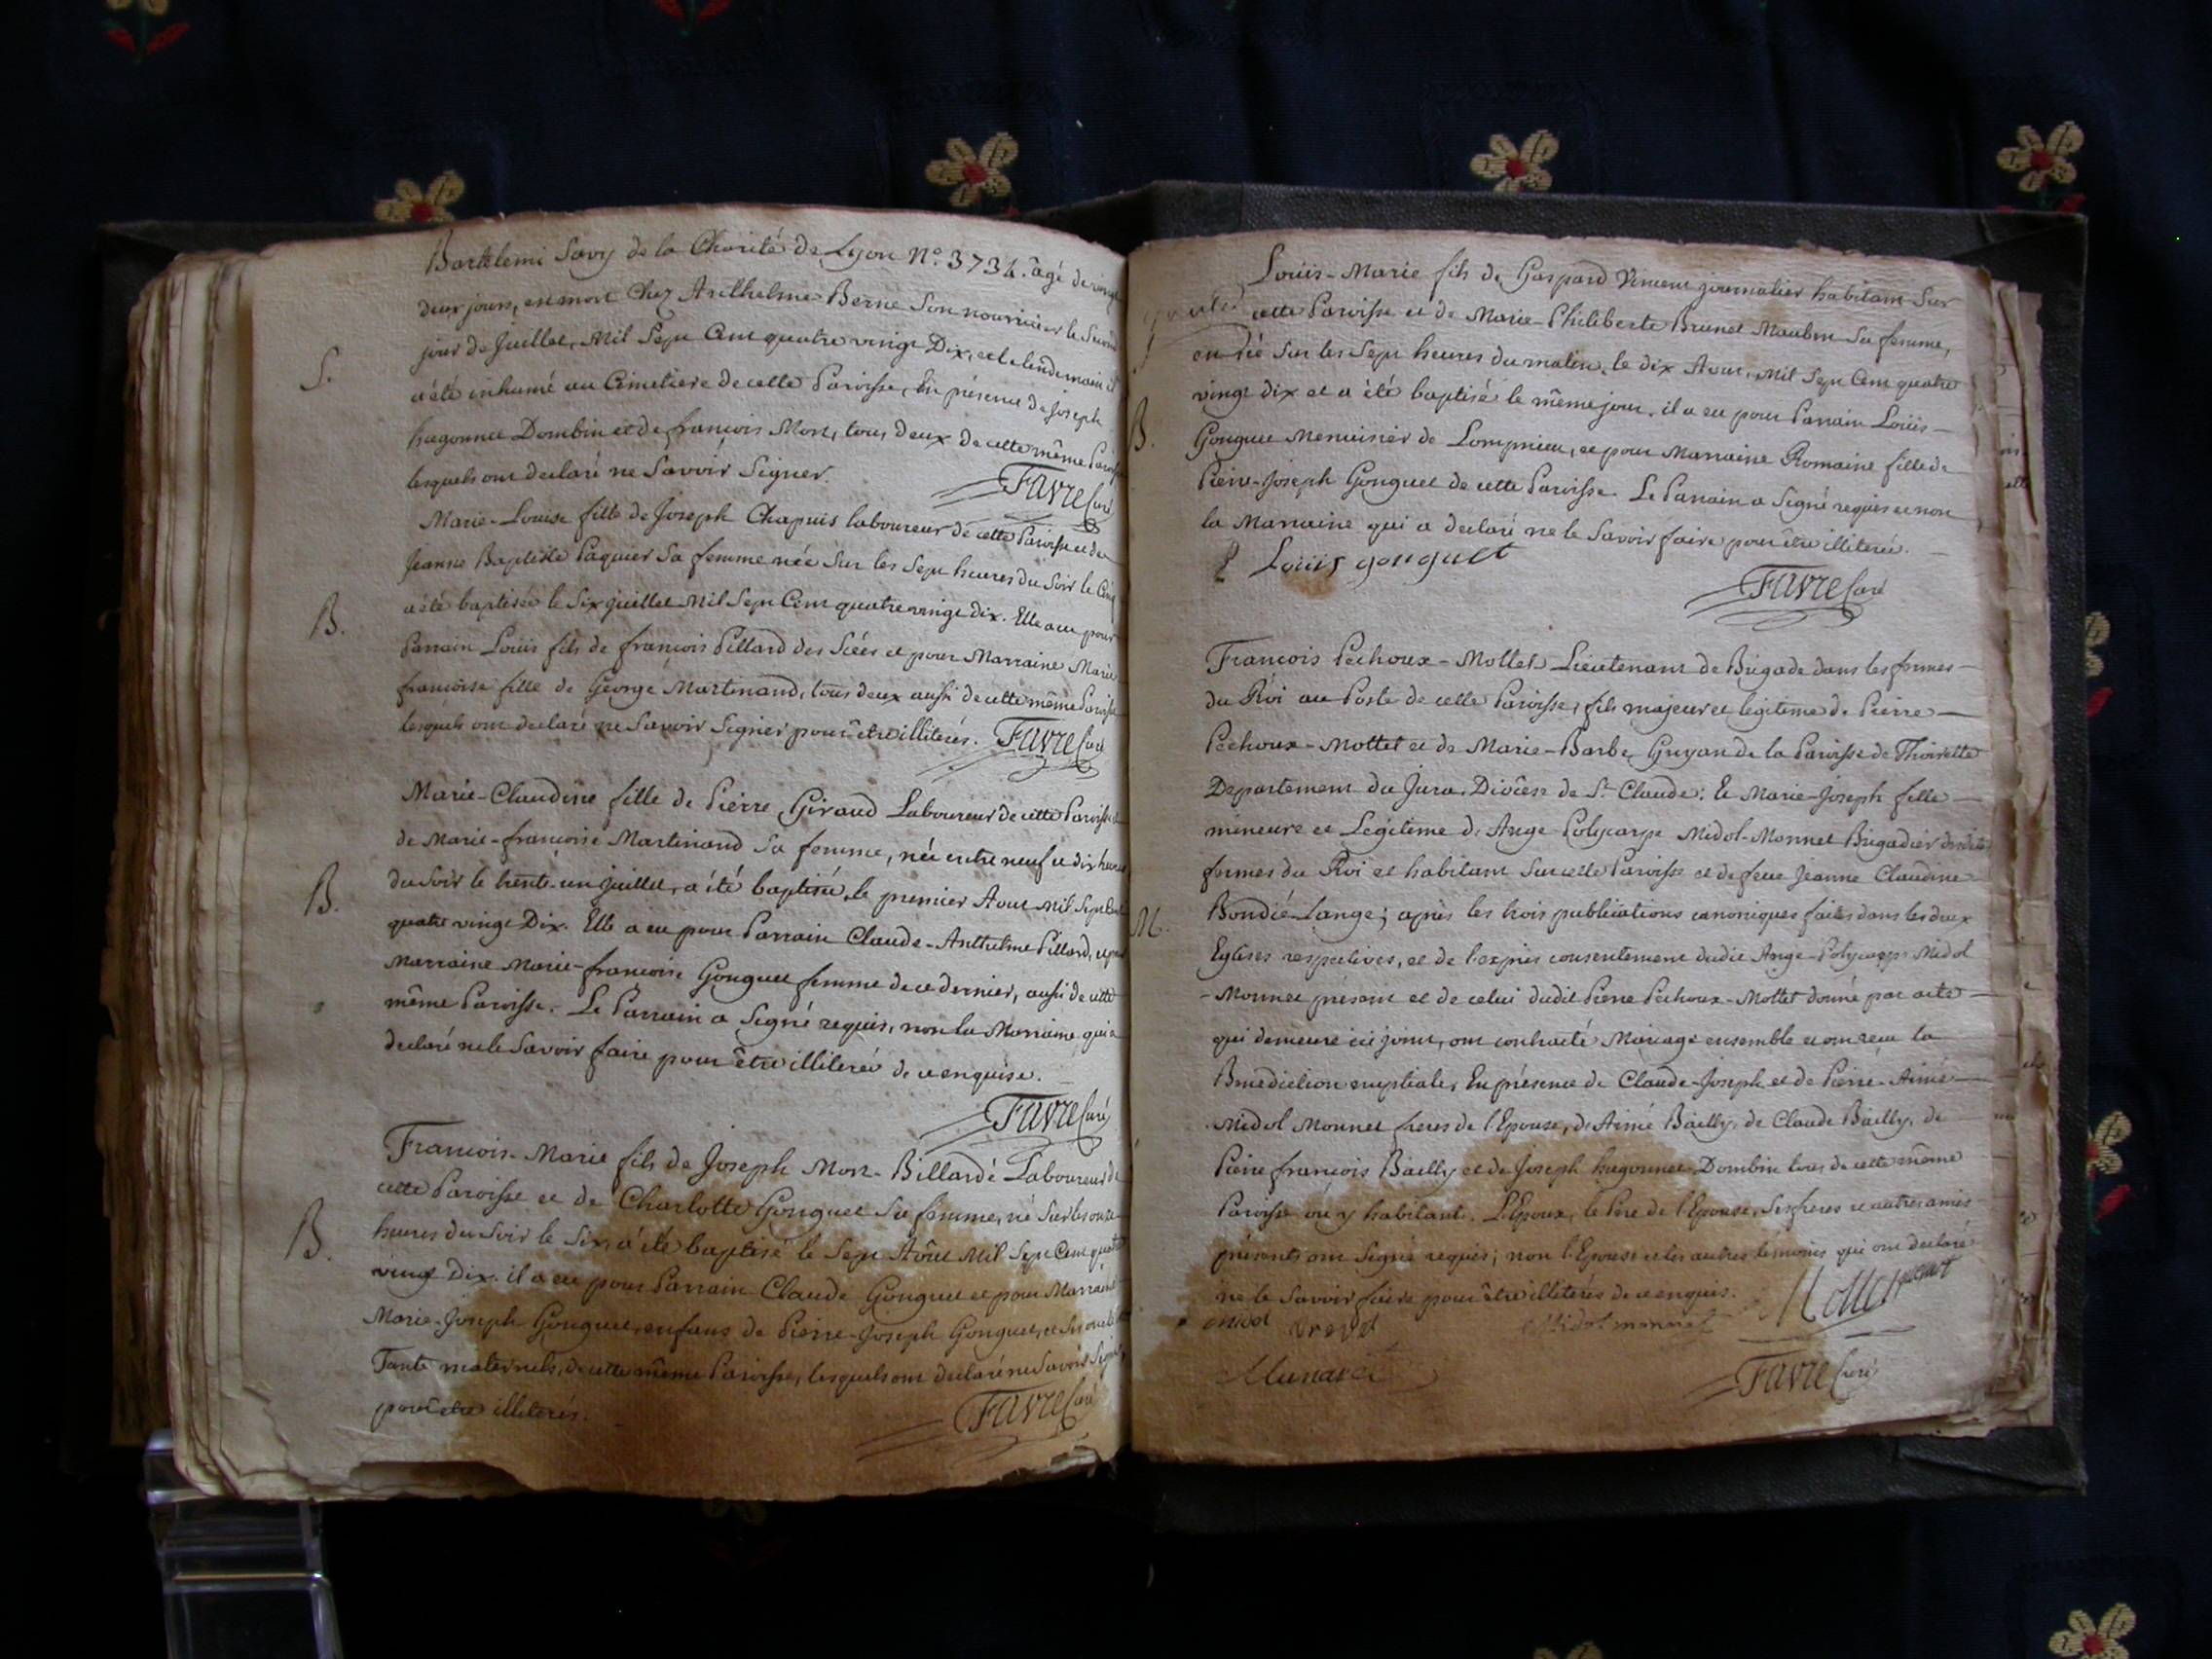 Bartelemi Savy de la Charité de Lyon N.° 3734. âgé de vingt
deux jours, est mort chez Anthelme Berne Son nourricier le Second
jour de Juillet, Mil Sept Cent quatre vingt Dix, et le lendemain il
S.
a été inhumé au Cimetiere de cette Paroisse, En présence de Joseph
hugonnet Dombin et de françois Mort, tous deux de cette même Paroisse
lesquels ont declaré ne Savoir Signer.
Favre Curé
Marie-Louise fille de Joseph Chapuis laboureur de cette Paroisse et de
Jeanne Baptiste Paquier Sa femme née Sur les Sept heures du Soir le Cinq
a été baptisée le Six juillet Mil Sept Cent quatre vingt Dix. Elle a eu pour
B.
Parrain Loüis fils de françois Pillard des Sciés et pour Marraine Marie
françoise fille de George Martinand, tous deux aussi de cette même Paroisse
lesquels ont declaré ne Savoir Signer pour être illiterés. Favre Curé
Marie-Claudine fille de Pierre Giraud Laboureur de cette Paroisse et
de Marie-françoise Martinand Sa femme, née entre neuf et dix heures
du Soir le trente-un juillet, a été baptisée le premier Aout Mil Sept Cent
B.
quatre vingt Dix. Elle a eu pour Parrain Claude-Anthelme Pillard, et pour
Marraine Marie-françoise Gonguet femme de ce dernier, aussi de cette
même Paroisse. Le Parrain a Signé requis, non la Marraine qui a
declaré ne le Savoir faire pour être illiterée de ce enquise.
Favre Curé
François-Marie fils de Joseph Mort-Billardé Laboureur de
cette Paroisse et de Charlotte Gonguet Sa femme, né Sur les onze
heures du Soir le Six, a été baptisé le Sept Aôut Mil Sept Cent quatre
B.
vingt Dix. il a eu pour Parrain Claude Gonguet et pour Marraine
Marie-Joseph Gonguet, enfans de Pierre-Joseph Gonguet, et Ses oncle et
Tante maternels, de cette même Paroisse, lesquels ont declaré ne Savoir Signer
pour être illiterés.
Favre Curé
Loüis-Marie fils de Gaspard Vincent journalier habitant Sur
cette Paroisse et de Marie-Philiberte Brunet Maubon Sa femme,
est né Sur les Sept heures du matin, le dix Aout, Mil Sept Cent quatre
vingt dix et a été baptisé le même jour. il a eu pour Parrain Loüis
B.
Gonguet Menuisier de Lompnieu, et pour Marraine Romaine fille de
Pierre-Joseph Gonguet de cette Paroisse. Le Parrain a Signé requis et non
la Marraine qui a declaré ne le Savoir faire pour être illiterée.
Loüis gonguet
Favre Curé
François Pechoux-Mottet Lieutenant de Brigade dans les fermes
du Roi au Poste de cette Paroisse, fils majeur et legitime de Pierre
Pechoux-Mottet et de Marie-Barbe Guyan de la Paroisse de Thoirette
Departement du Jura, Diocèse de S.t Claude; Et Marie-Joseph fille
mineure et Legitime d'Ange Polycarpe Midol-Monnet Brigadier desdites
fermes du Roi et habitant Sur cette Paroisse et de feue Jeanne Claudine
M.
Bondié-Lange; après les trois publications canoniques faites dans les deux
Eglises respectives, et de l'exprès consentement dudit Ange-Polycarpe Midol
-Monnet présent et de celui dudit Pierre Pechoux-Mottet donné par acte
qui demeure ici joint, ont contracté Mariage ensemble et ont reçu la
Benediction nuptiale, En présence de Claude-Joseph et de Pierre-Aimé
Midol Monnet freres de l'Epouse, d'Aimé Bailly, de Claude Bailly, de
Pierre françois Bailly et de Joseph hugonnet-Dombin tous de cette même
Paroisse ou y habitants. L'Epoux, le Pere de l'Epouse, Ses freres et autres amis
présents ont Signé requis; non l'Epouse et les autres témoins qui ont declaré
ne le Savoir faire pour être illiterés de ce enquis.
midol
Midol monnet
Favre Curé